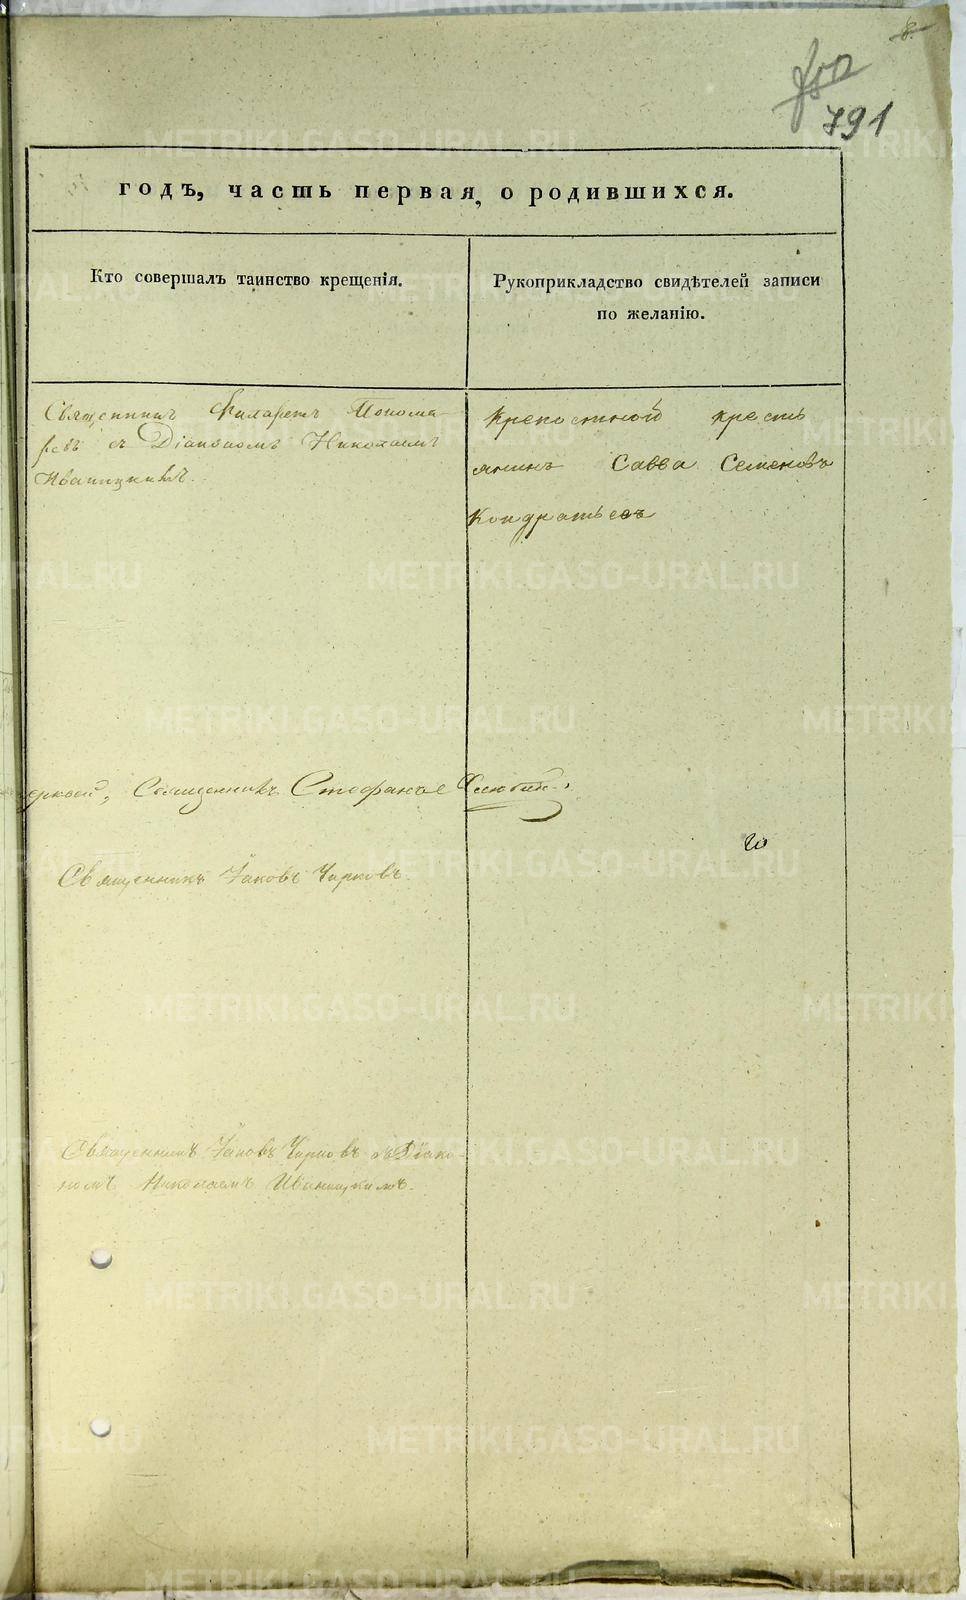 8.
791
годъ, часть первая, о родившихся.
Кто совершалъ таинство крещенія.
Рукоприкладство свидѣтелей записи
по желанію.
Священникъ Филаретъ Понома-
ревъ съ Діакономъ Николаемъ
Иваницкимъ.
Крепостной кресть
янинъ Савва Семеновъ
Кондратьевъ
Священникъ Стефанъ
Священникъ Іаковъ Чирковъ.
Священникъ Іаковъ Чирковъ съ Діако-
номъ Николаемъ Иваницкимъ.
METRIKI.GASO-URAL.RU